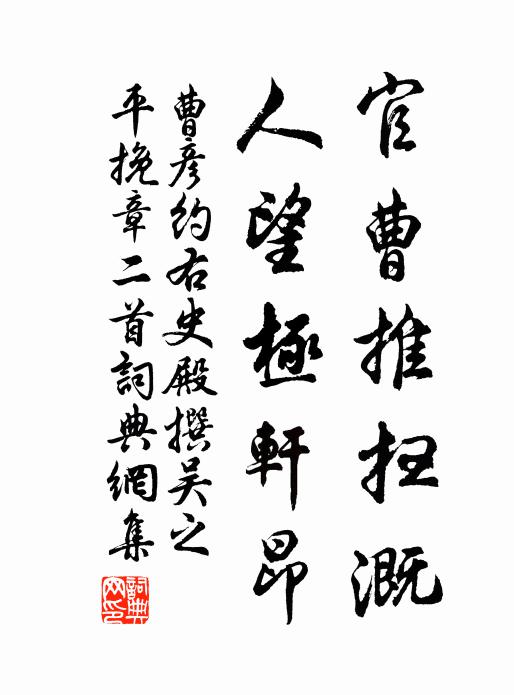 官曹推扭溉
人望極軒昂
曹彥約右史殿撰吳之
平挽章二首詞典網集
詞典网印